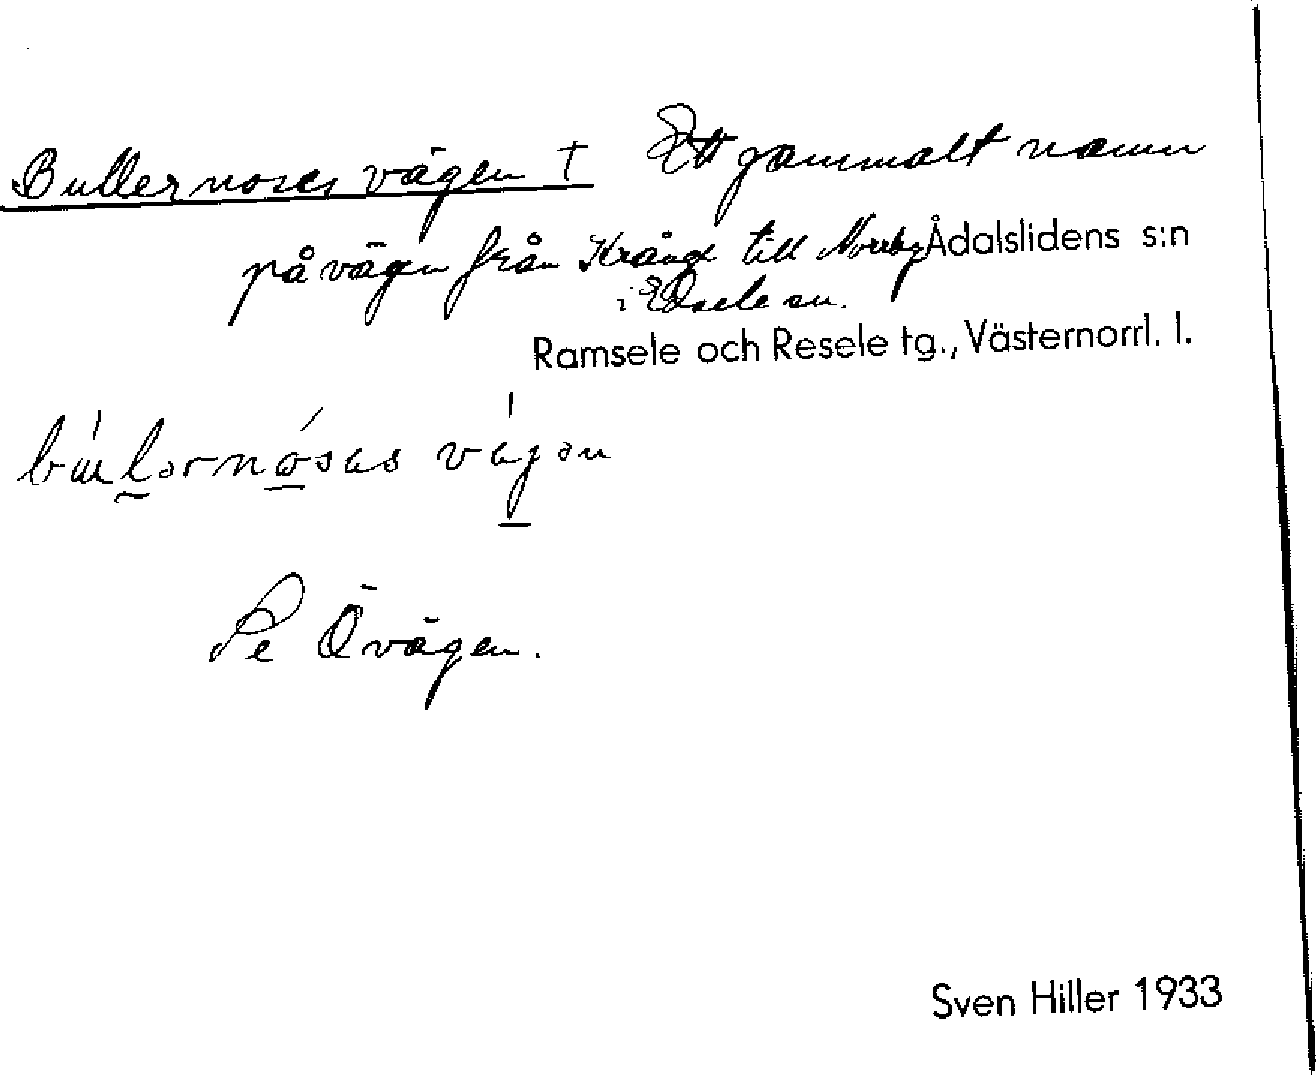 Bullernoses vägen † Ett gammalt namn
på vägen från Krånge till Norrby Ådalslidens s:n
i Edsele sn.
Ramsele och Resele tg., Västernorrl. l.
vägən
Se Övägen.
Sven Hiller 1933